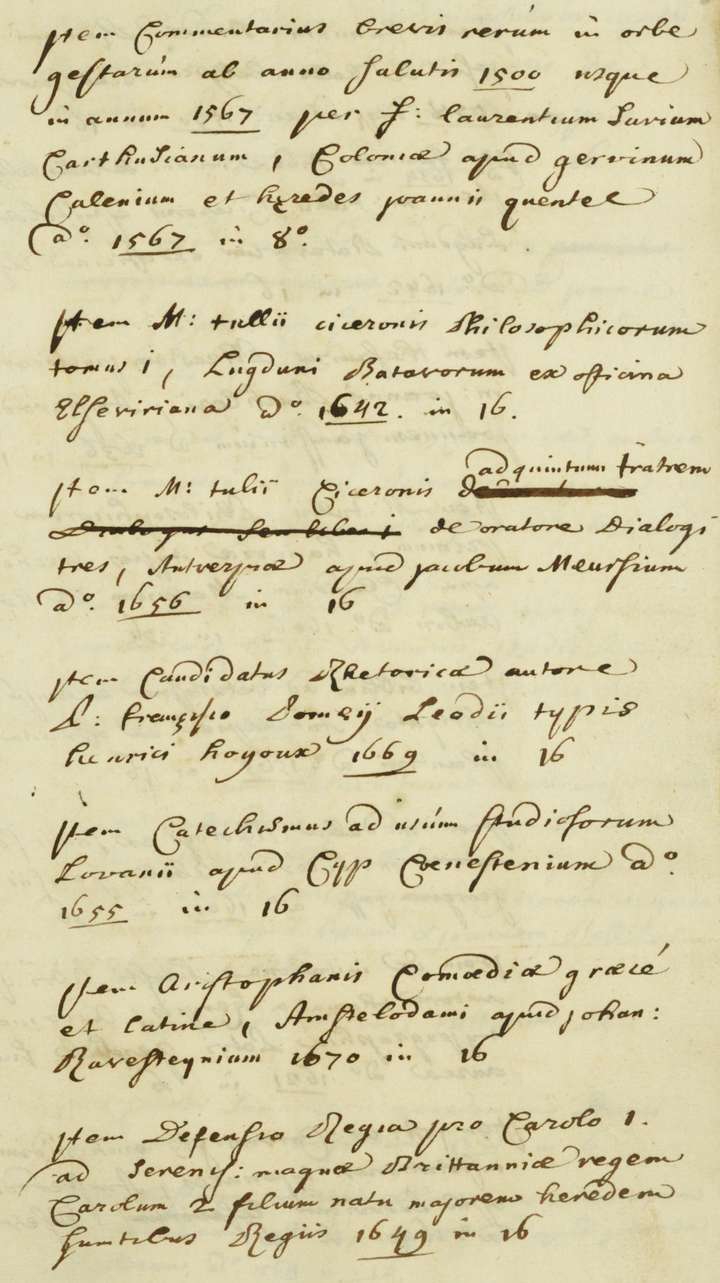 Item Commentarius brevis rerúm in orbe
gestarúm ab anno salutis 1500 usque
in annum 1567 per F: laurentium Surium
Carthusianum, Coloniæ apud gervinum
Calenium et hæredes joannis quentel
aº. 1567 in 8º.
Item M: tullii ciceronis Philosophicorum
tomus i, Lugduni Batavorum ex officina
Elseviriana aº. 1642. in 16.
ad quintum fratrem
Item M: tulii Ciceronis
de oratore Dialogi
tres, Antverpiæ apud jacobum Meursium
aº. 1656 in 16
Item Candidatus Rhetoricæ autore
P: francisco Pomeÿ Leodii typis
henrici hoyoux 1669 in 16
Item Catechismus ad usúm studiosorum
Lovanii apud Cyp Coenestenium aº.
1655 in 16
Item Aristophanis Comœdiæ græcé
et latine, Amstelodami apud johan:
Ravesteynium 1670 in 16
Item Defensio Regia pro Carolo 1.
ad serenis: magnæ Brittanniæ regem
Carolum 2 filium natu majorem heredem
sumtibus Regiis 1649 in 16